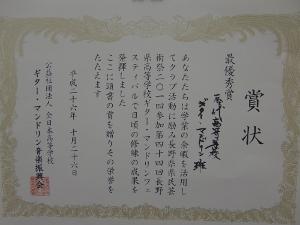 賞状
最優秀賞
高等学校
ギター・マンドリン班
あなたたちは学業の余暇を活用し
てクラブ活動に励み長野県県民芸
術祭二〇一四参加第四十四回長野
県高等学校ギター・マンドリンフェ
スティバルで日頃の修練の成果を
発揮しました
ここに頭書の賞を贈りその栄誉を
たたえます
平成二十六年 十月二十六日
公益社団法人 全日本高等学校
ギター・マンドリン音楽振興会